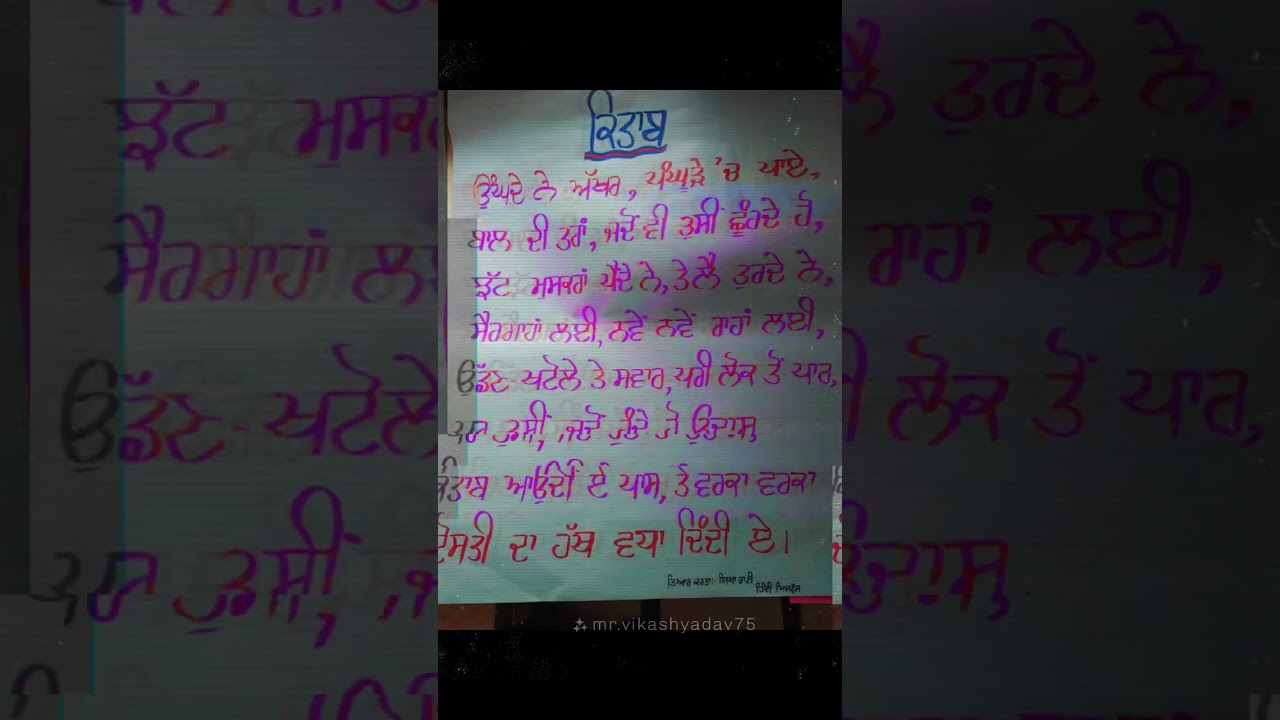 ਕਿਤਾਬ
ਊਂਘਦੇ ਨੇ ਅੱਖਰ, ਪੰਘੂੜੇ 'ਚ ਪਾਏ,
ਬਾਲ ਦੀ ਤਰਾਂ, ਜਦੋਂ ਵੀ ਤੁਸੀਂ ਛੂੰਹਦੇ ਹੋ,
ਝੱਟ ਮੁਸਕਰਾਂ ਪੈਂਦੇ ਨੇ, ਤੇ ਲੈ ਤੁਰਦੇ ਨੇ,
ਸੈਰਗਾਹਾਂ ਲਈ, ਨਵੇਂ ਨਵੇਂ ਰਾਹਾਂ ਲਈ,
ਉੱਡਣ-ਖਟੋਲੇ ਤੇ ਸਵਾਰ, ਪਰੀ ਲੋਕ ਤੋਂ ਪਾਰ,
ਤੁਸੀਂ, ਜਦੋਂ ਹੁੰਦੇ ਹੋ ਉਦਾਸ
ਕਿਤਾਬ ਆਉਂਦੀ ਏ ਪਾਸ, ਤੇ ਵਰਕਾ ਵਰਕਾ
ਦੋਸਤੀ ਦਾ ਹੱਥ ਵਧਾ ਦਿੰਦੀ ਏ।
ਤਿਆਰ ਕਰਤਾ:-
ਹਿੰਦੀ ਮਿਸਟ੍ਰੈਸ
mr.vikashyadav75